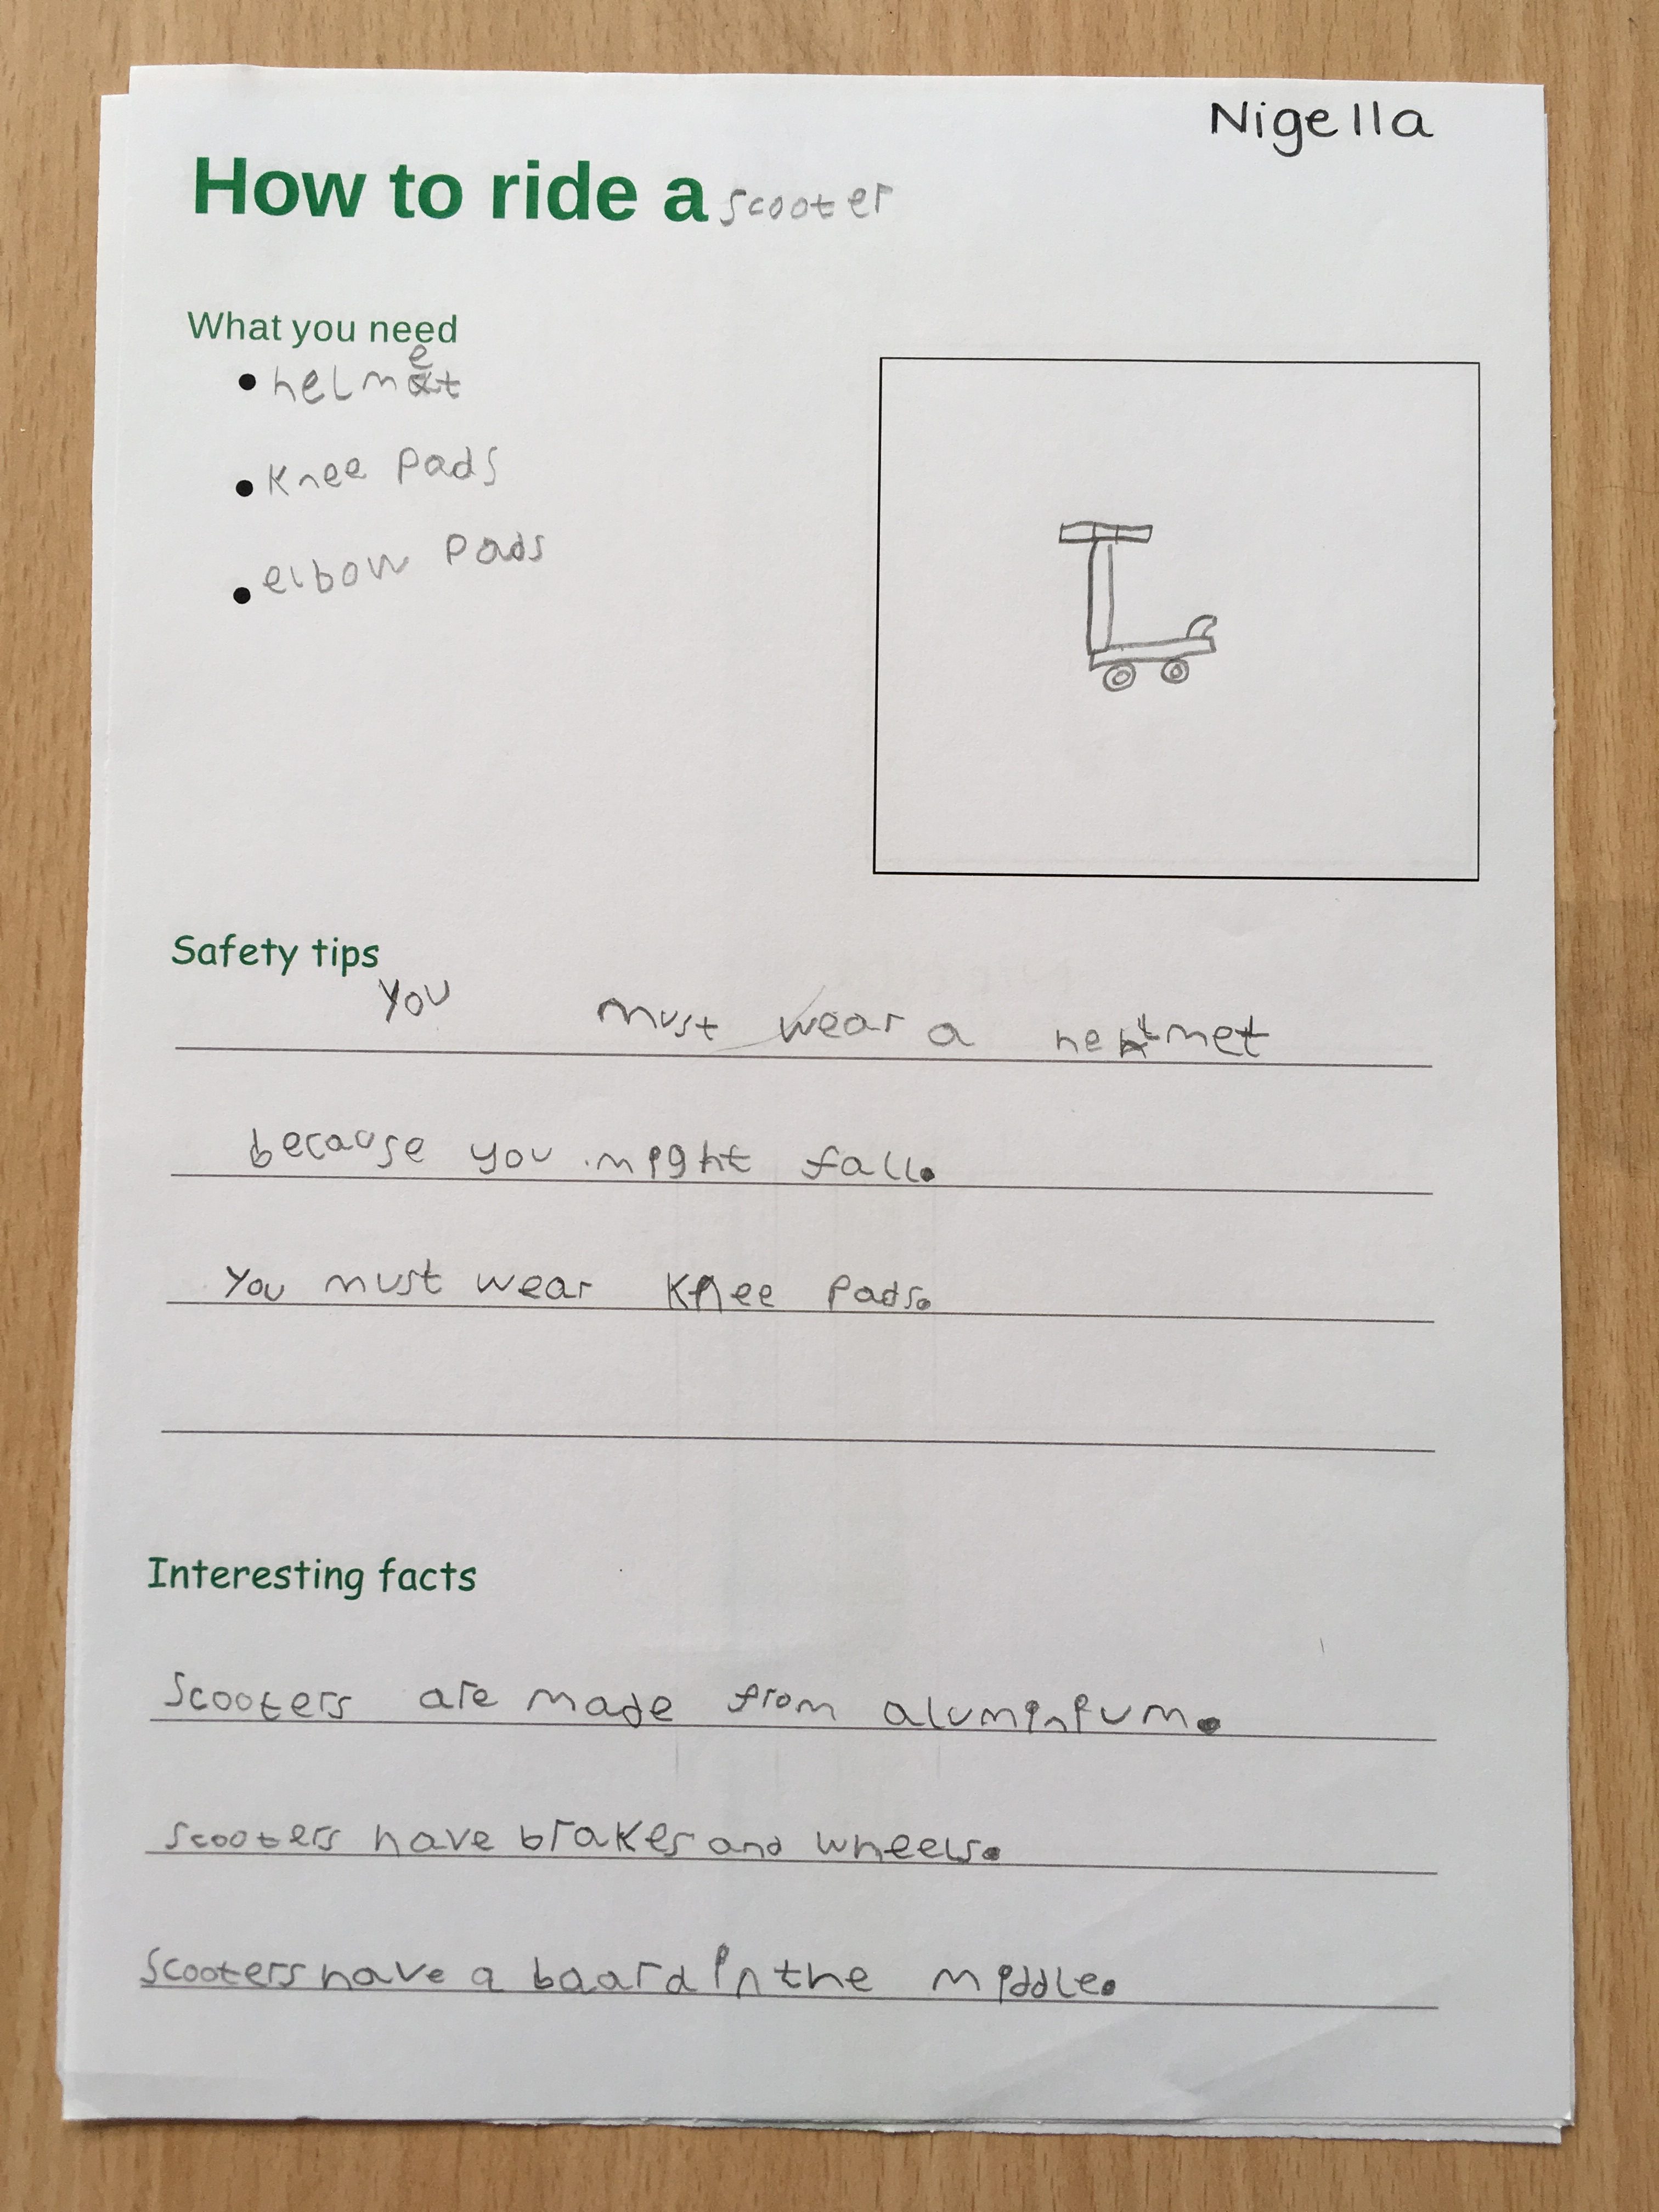 Nigella
How to ride a scooter
What you need
• helmet
• Knee pads
• elbow pads
Safety tips
You must wear a helmet
because you might fall.
You must wear knee pads.
Interesting facts
Scooters are made from aluminium.
scooters have brakes and wheels.
Scooters have a baard in the middle.